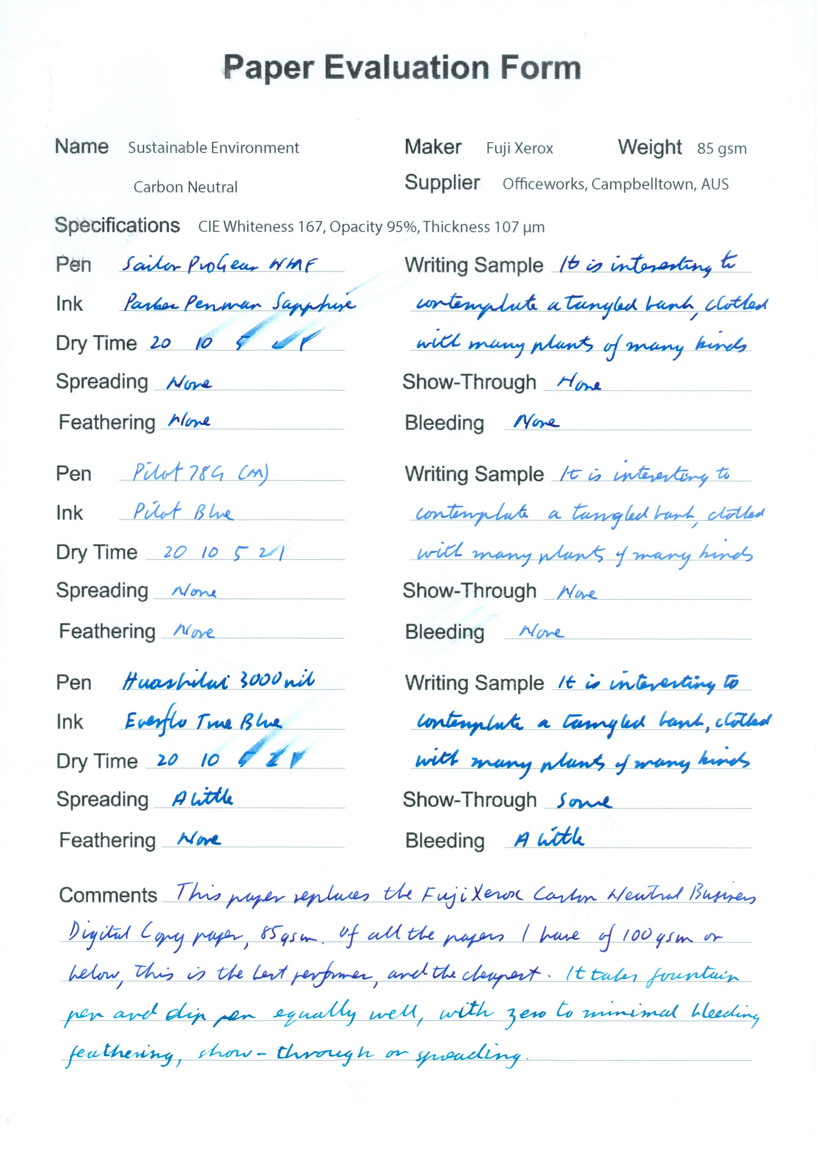 Paper Evaluation Form
Name Sustainable Environment Maker Fuji Xerox Weight 85 gsm
Carbon Neutral Supplier Officeworks, Campbelltown, AUS
Specifications CIE Whiteness 167, Opacity 95%, Thickness 107 µm
Pen Sailor ProGear NMF Writing Sample It is interesting to
Ink Parker Penman Sapphire contemplate a tangled bank, clotted
Dry Time 20 10 5 2 1 with many plants of many kinds
Spreading None Show-Through None
Feathering None Bleeding None
Pen Pilot 78G (M) Writing Sample It is interesting to
Ink Pilot Blue contemplate a tangled bank, clotted
Dry Time 20 10 5 2 1 with many plants of many kinds
Spreading None Show-Through None
Feathering None Bleeding None
Pen Huashilai 3000 nib Writing Sample It is interesting to
Ink Everflo True Blue contemplate a tangled bank, clotted
Dry Time 20 10 5 2 1 with many plants of many kinds
Spreading A little Show-Through Some
Feathering None Bleeding A little
Comments This paper replaces the Fuji Xerox Carbon Neutral Business
Digital Copy paper, 85gsm. Of all the papers I have of 100gsm or
below, this is the best performer, and the cheapest. It takes fountain
pen and dip pen equally well, with zero to minimal bleeding
feathering, show-through or spreading.